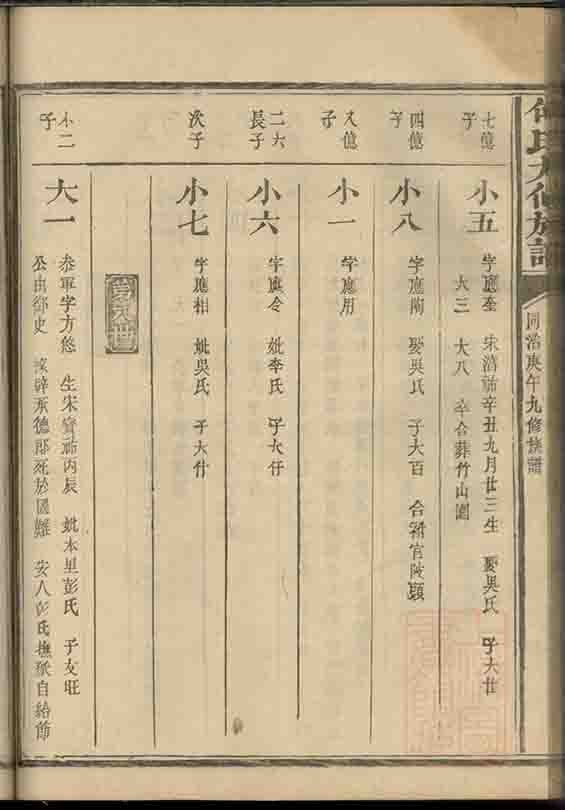 何氏九修族譜
同治庚午九修族譜
七億
子
小五
字應奎 宋淳祐辛丑九月廿三生 娶吳氏 子大廿
大三 大八 卒合葬竹山園
四億
子
小八
字應陶 娶吳氏 子大百 合葬官陂
八億
子
小一
字應用
二六
長子
小六
字應令 妣李氏 子大仔
次子
小七
字應相 妣吳氏 子大什
小二
子
大一
叅軍字方悠 生宋寶祐丙辰 妣本里彭氏 子友旺
公由御史 承德郎死於國難 安人彭氏撫孤自給節